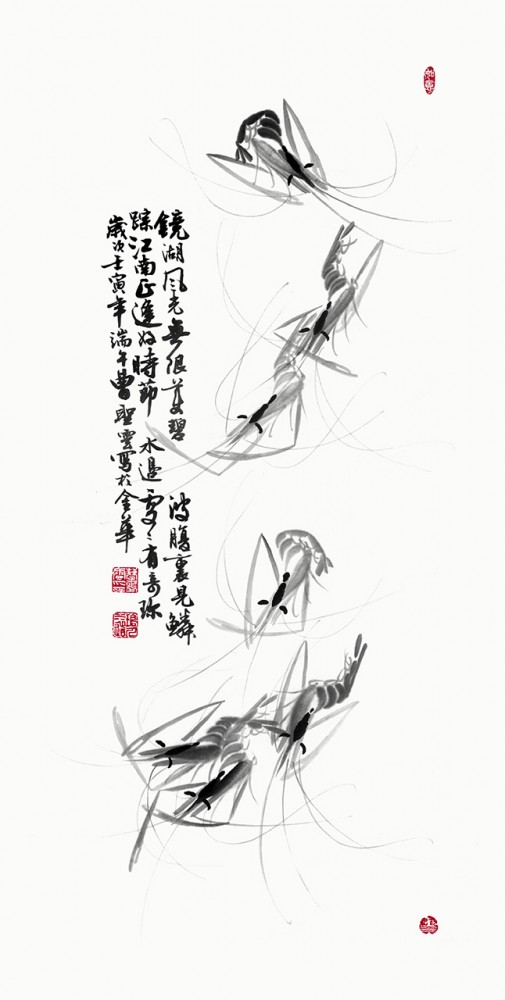 鏡湖风光無限美碧波腹裏見鱗
踪江南正逢好時節水邊處〻有奇珍
歲次壬寅年端午曹聖雲寫於金華